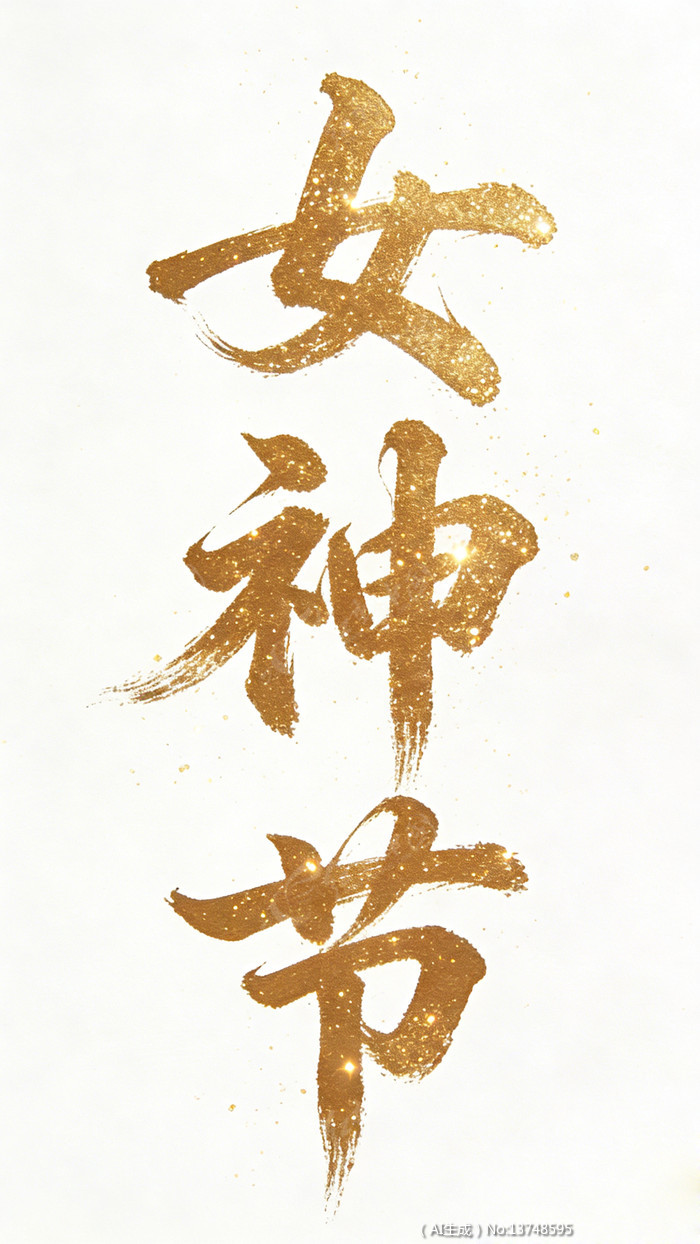 女神节
（AI生成）No:13748595